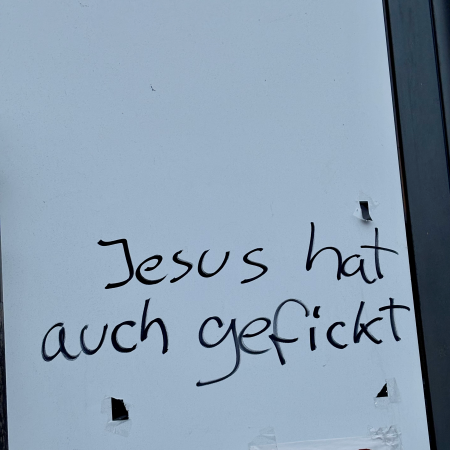 Jesus hat
auch gefickt